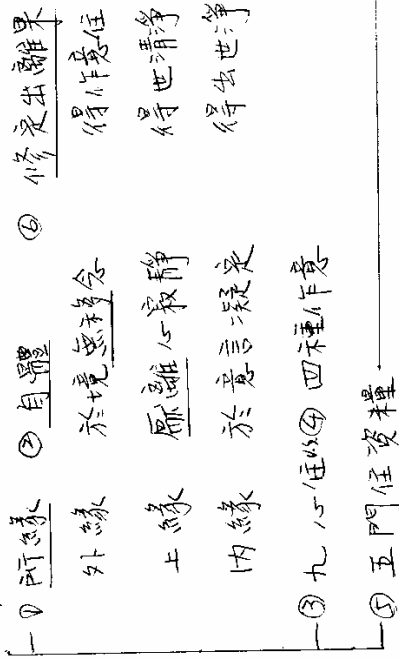 ① 所緣 ② 自體 ⑥ 修定出離果
外緣 於境無移念 得作意住
上緣 厭離心寂靜 得世清淨
內緣 於意言凝定 得出世淨
③ 九心住 ④ 四種作意
⑤ 五門住資糧